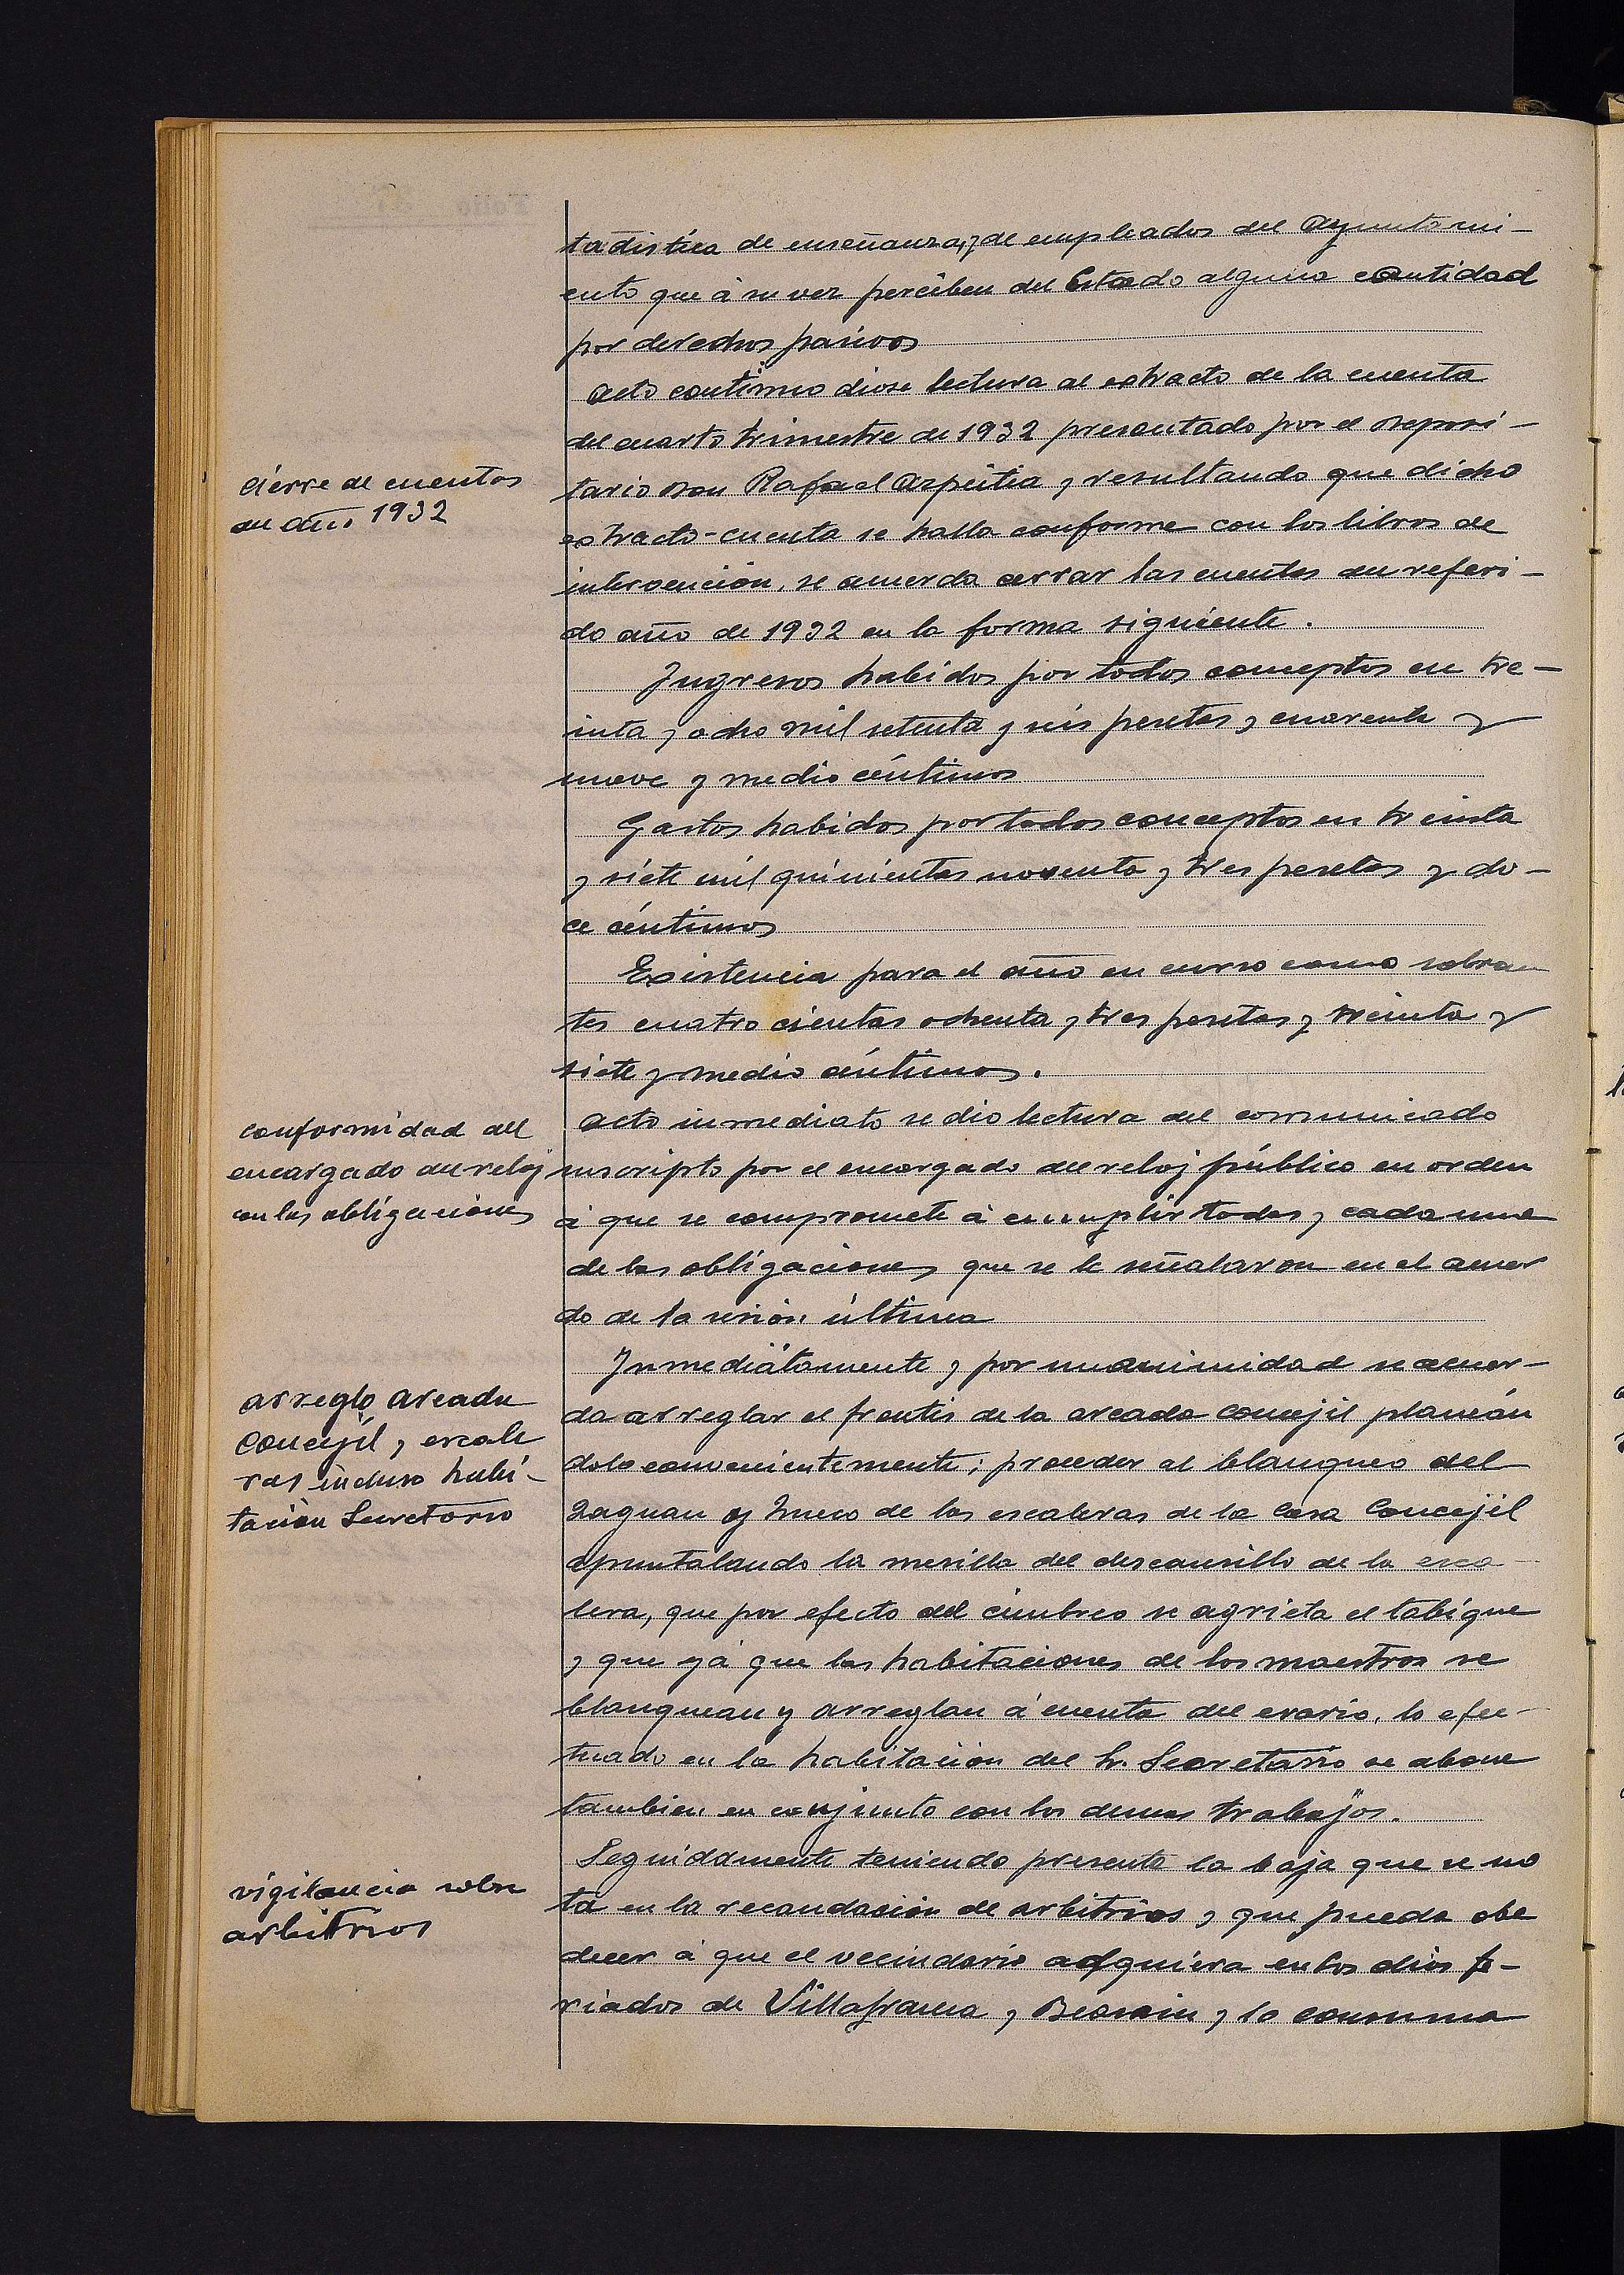 tadistica de enseñanza, y de empleados del Ayuntami-
ento que à su vez perciben del Estado alguna cantidad
por derechos pasivos
Acto continuo diose lectura al extracto de la cuenta
del cuarto trimestre de 1932 presentado por el Deposi-
cierre de cuentas
del año 1932
tario Don Rafael Azpeitia y resultando que dicho
extracto-cuenta se halla conforme con los libros de
intervención, se acuerda cerrar las cuentas del referi-
do año de 1932 en la forma siguiente.
Ingresos habidos por todos conceptos en tre-
inta y ocho mil setenta y seis pesetas y cuarenta y
nueve y medio céntimos
Gastos habidos por todos conceptos en treinta
y siete mil quinientas noventa y tres pesetas y do-
ce céntimos
Existencia para el año en curso como sobran
tes cuatro cientas ochenta y tres pesetas y treinta y
siete y medio céntimos.
conformidad del
encargado del reloj
con las obligaciones
Acto inmediato se dio lectura del comunicado
suscripto por el encargado del reloj público en orden
à que se compromete à cumplir todas y cada una
de las obligaciones que se le señalaron en el acuer
do de la sesión última
arreglo arcada
Concejil, escale
ras incluso habi-
tación Secretario
Inmediátamente y por unanimidad se acuer-
da arreglar el frontis de la arcada concejil planeán
dolo convenientemente; proceder al blanqueo del
zaguan y hueco de las escaleras de la Casa Concejil
apuntalando la mesilla del descansillo de la esca-
lera, que por efecto del cimbreo se agrieta el tabique
y que yá que las habitaciones de los maestros se
blanquean y arreglan á cuenta del erario, lo efec-
tuado en la habitación del Sr. Secretario se abone
tambien en conjunto con los demas trabajos.
vigilancia sobre
arbitrios
Seguidamente teniendo presente la baja que se no
ta en la recaudación de arbitrios y que pueda obe
decer á que el vecindario adquiera en los dias fe-
riados de Villafranca y Beasain y lo consuma